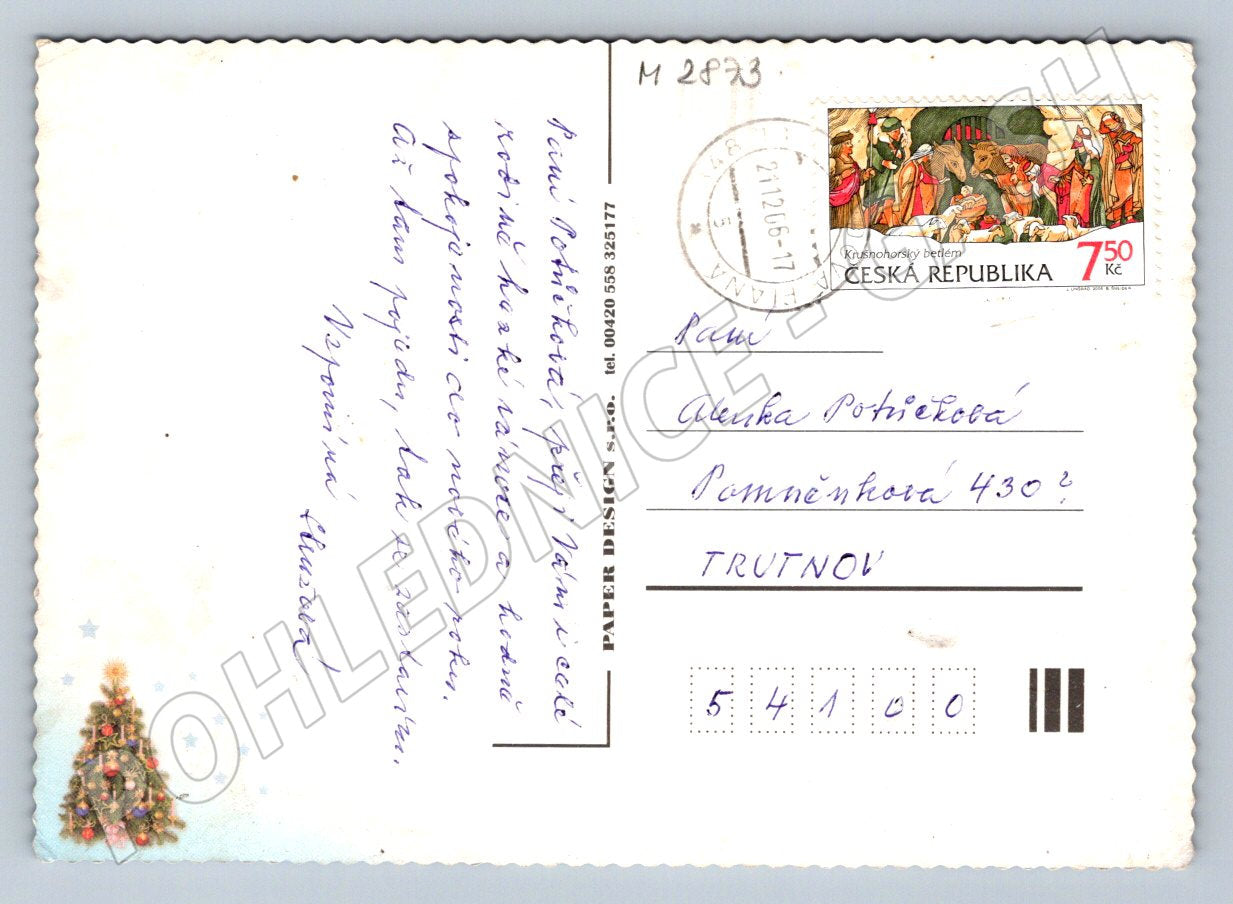 M 2873
Paní Potůčková, přeji Vám i celé
rodině hezké vánoce a hodně
spokojenosti do nového roku.
Až tam pojedu, tak se zastavím.
Vzpomíná
PAPER DESIGN s.r.o. tel. 00420 558 325177
21.12.06-17
Krušnohorský betlém
ČESKÁ REPUBLIKA 7,50 Kč
Paní
Alenka Potůčková
Pomněnková 430?
TRUTNOV
5 4 1 0 0
POHLEDNICE